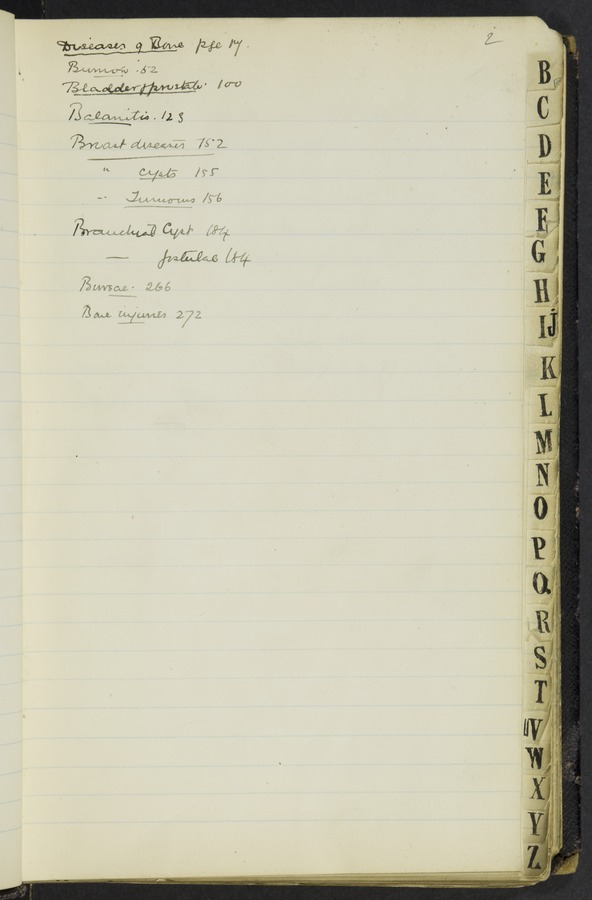 2
Diseases of Bone pge 17.
52
Bladder & prostate. 100
Balanitis. 123
Breast diseases 152
" cysts 155
-- Tumours 156
Branchial Cyst 184
— fistulae 184
Bursae. 266
Bone injuries 272
B
C
D
E
F
G
H
IJ
K
L
M
N
O
P
Q
R
S
T
UV
W
X
Y
Z